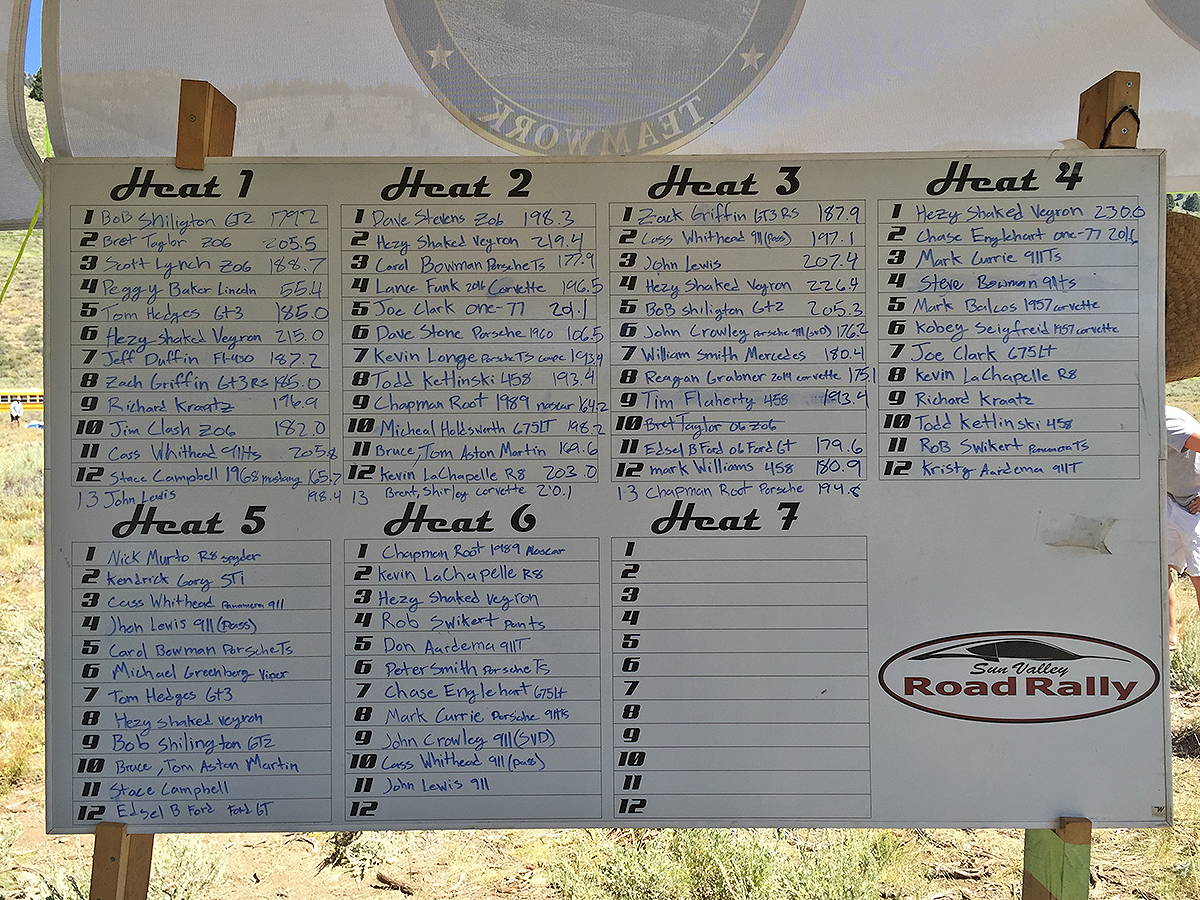 TEAMWORK
Heat 1
1 Bob Shiligton GT2 179.2
2 Bret Taylor Z06 205.5
3 Scott Lynch Z06 188.7
4 Peggy Baker Lincoln 55.4
5 Tom Hedges GT3 185.0
6 Hezy Shaked Veyron 215.0
7 Jeff Duffin F1-430 187.2
8 Zach Griffin GT3 RS 185.0
9 Richard Kraatz 196.9
10 Jim Clash Z06 182.0
11 Cass Whithead 911ts 205.8
12 Stace Campbell 1968 mustang 165.7
13 John Lewis 198.4
Heat 2
1 Dave Stevens Z06 198.3
2 Hezy Shaked Veyron 219.4
3 Carol Bowman Porsche Ts 177.9
4 Lance Funk 2016 Corvette 196.5
5 Joe Clark one-77 201.1
6 Dave Stone Porsche 1960 106.5
7 Kevin Longe Porsche TS coupe 193.9
8 Todd Ketlinski 458 193.4
9 Chapman Root 1989 nascar 164.2
10 Micheal Holdsworth 675LT 198.2
11 Bruce, Tom Aston Martin 169.6
12 Kevin LaChapelle R8 203.0
13 Brent, Shirley corvette 210.1
Heat 3
1 Zack Griffin GT3 RS 187.9
2 Cass Whithead 911 (Pass) 197.1
3 John Lewis 207.4
4 Hezy Shaked Veyron 226.4
5 BoB shiligton GT2 205.3
6 John Crowley 911 (SVD) 176.2
7 William Smith Mercedes 180.4
8 Reagan Grabner 2014 corvette 175.1
9 Tim Flaherty 458 193.4
10 Bret Taylor 06 Z06
11 Edsel B Ford 06 Ford GT 179.6
12 mark Williams 458 180.9
13 Chapman Root Porsche 194.8
Heat 4
1 Hezy Shaked Veyron 230.0
2 Chase Englehart one-77
3 Mark Currie 911Ts
4 Steve Bowman 911ts
5 Mark Balcos 1957 corvette
6 Kobey Seigfreid 1957 corvette
7 Joe Clark 675LT
8 Kevin LaChapelle R8
9 Richard Kraatz
10 Todd Ketlinski 458
11 RoB Swikert Panamera Ts
12 Kristy Aardema 911T
Heat 5
1 Nick Murto R8 spyder
2 Kendrick Gary STi
3 Cass Whithead Panamera 911
4 Jhon Lewis 911 (pass)
5 Carol Bowman Porsche Ts
6 Michael Greenberg Viper
7 Tom Hedges GT3
8 Hezy Shaked veyron
9 Bob Shilington GT2
10 Bruce, Tom Aston Martin
11 Stace Campbell
12 Edsel B Ford Ford GT
Heat 6
1 Chapman Root 1989 Nascar
2 Kevin LaChapelle R8
3 Hezy Shaked veyron
4 Rob Swikert Pants
5 Don Aardema 911T
6 Peter Smith Porsche Ts
7 Chase Englehart 675LT
8 Mark Currie Porsche 911Ts
9 John Crowley 911 (SVD)
10 Cass Whithead 911 (pass)
11 John Lewis 911
12
Heat 7
1
2
3
4
5
6
7
8
9
10
11
12
Sun Valley
Road Rally